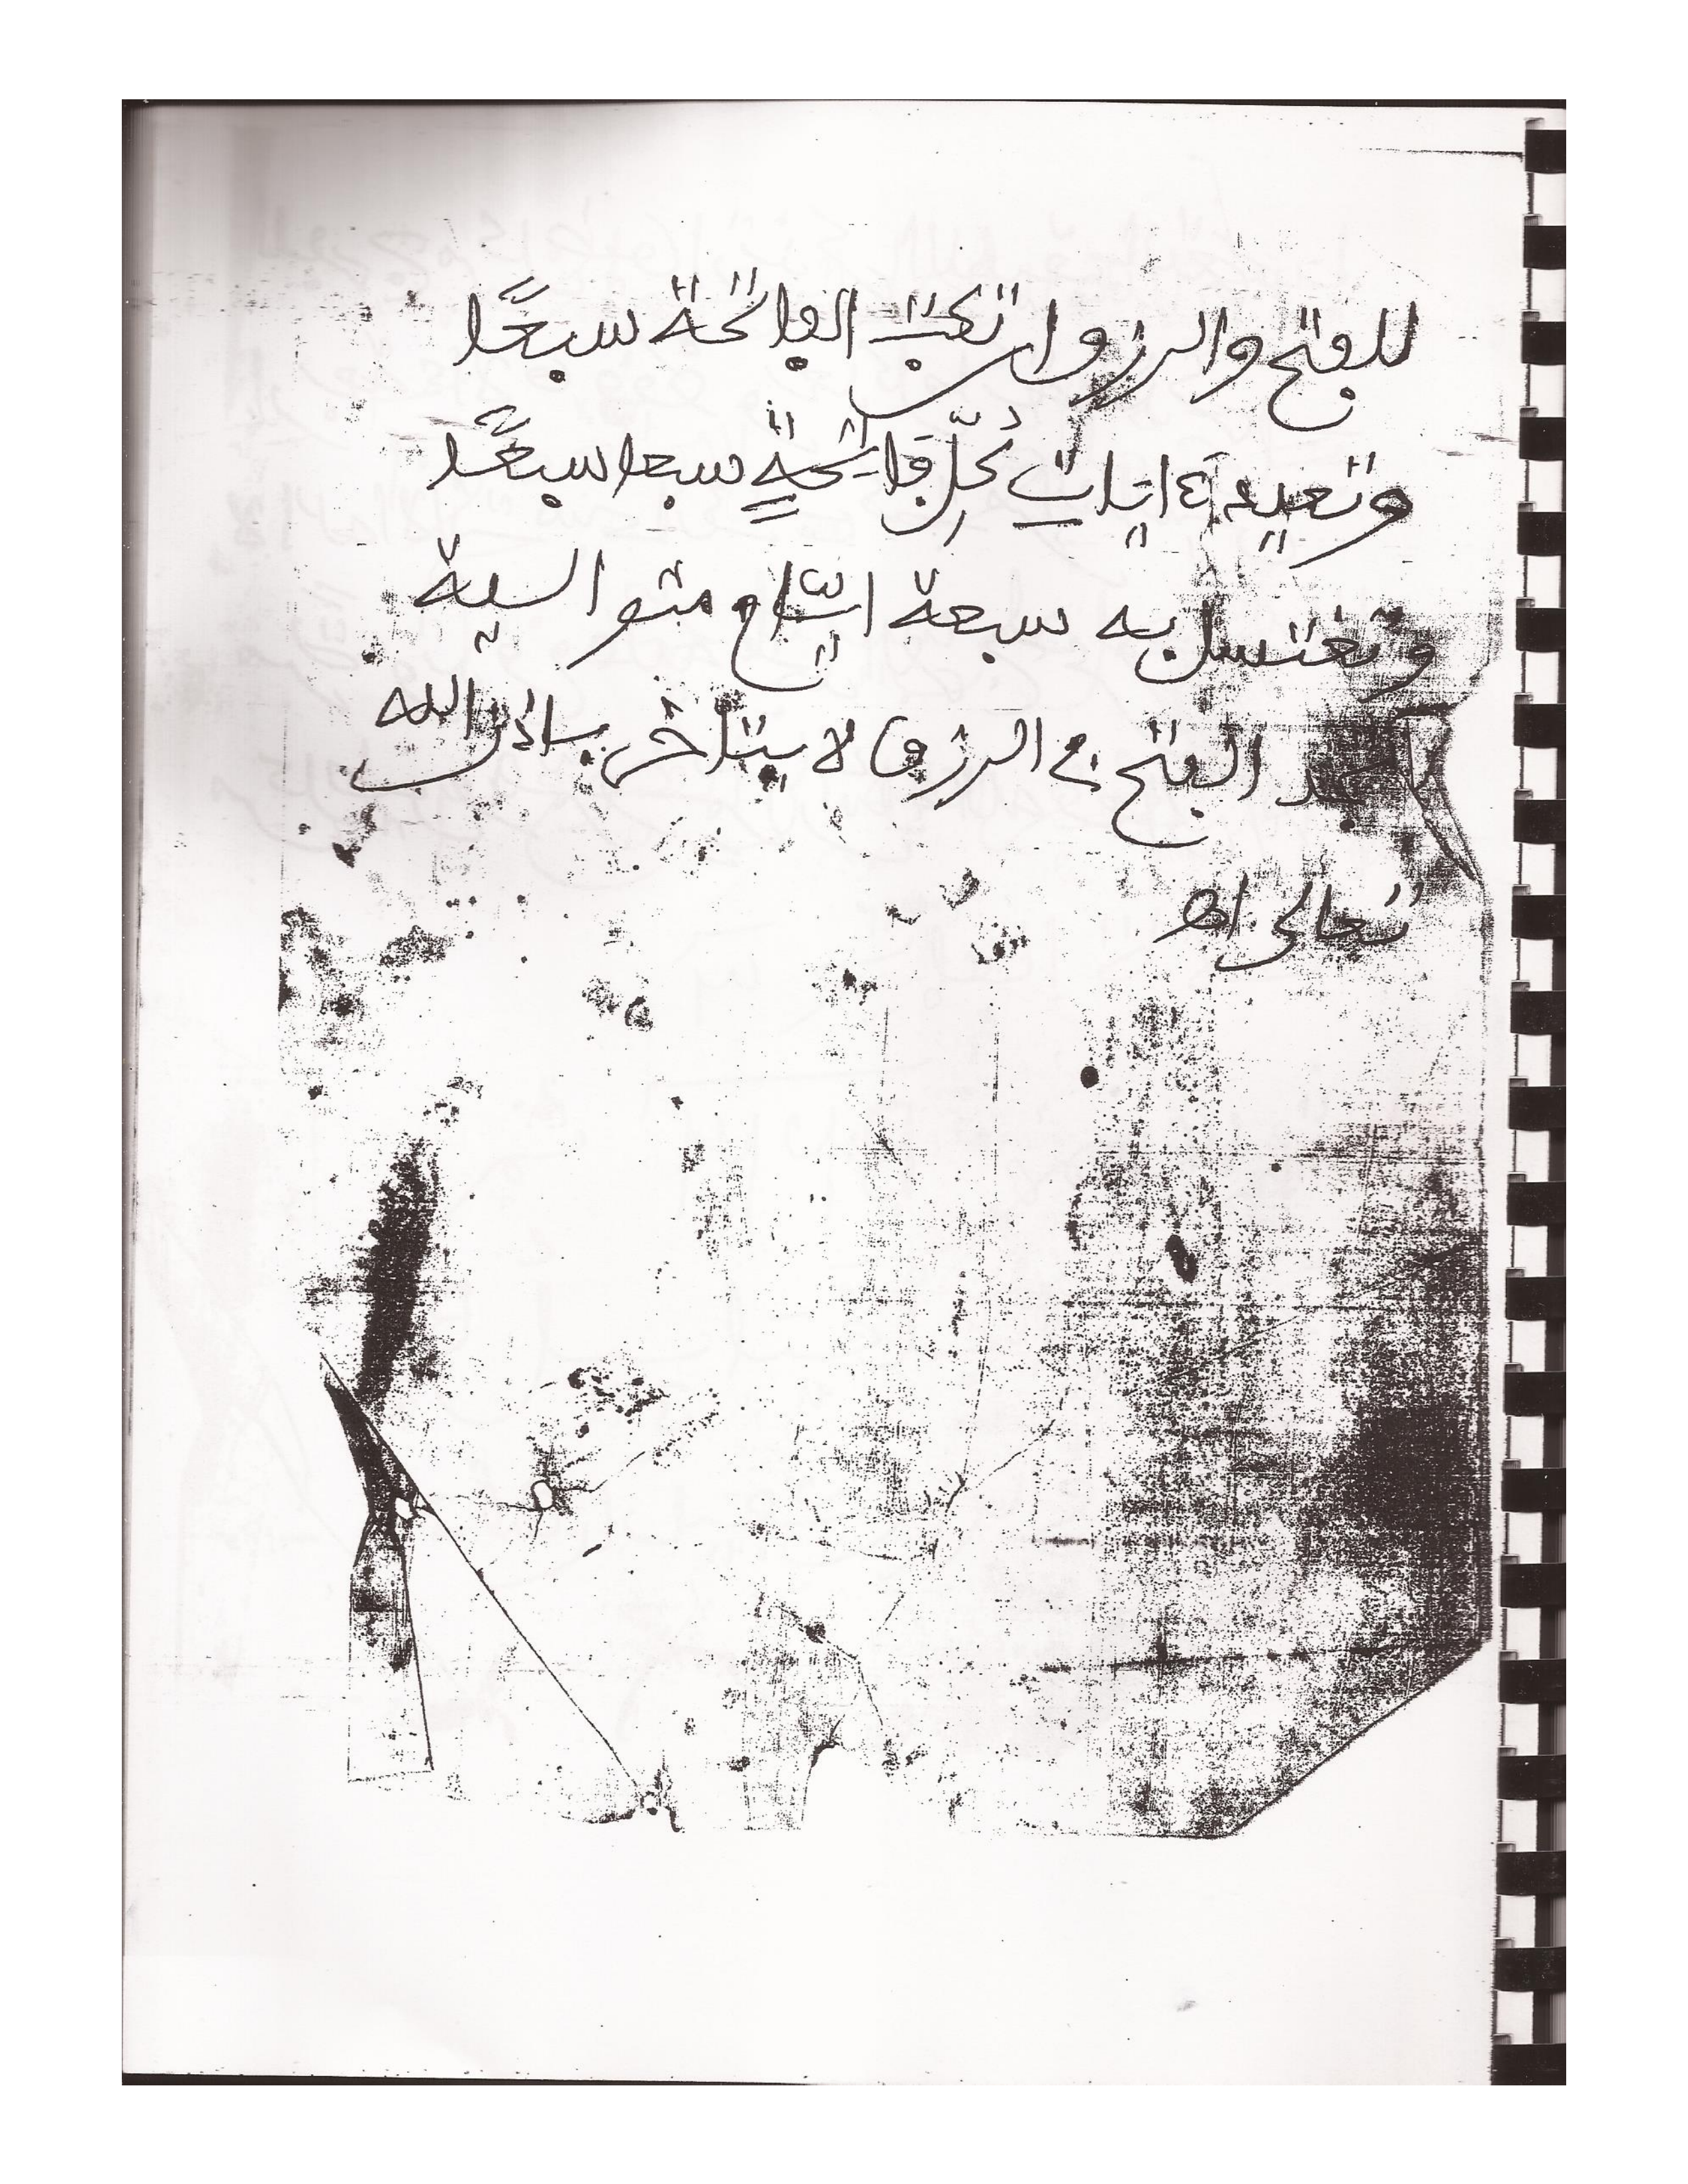 للفتح والرزق ان تكتب الفاتحة سبعًا
وتعيد ءايات كل فاتحة سبعا سبعًا
وتغتسل به سبعة ايام متوالية
الفتح في الرزق لا يتأخر بإذن الله
تعالى اهـ